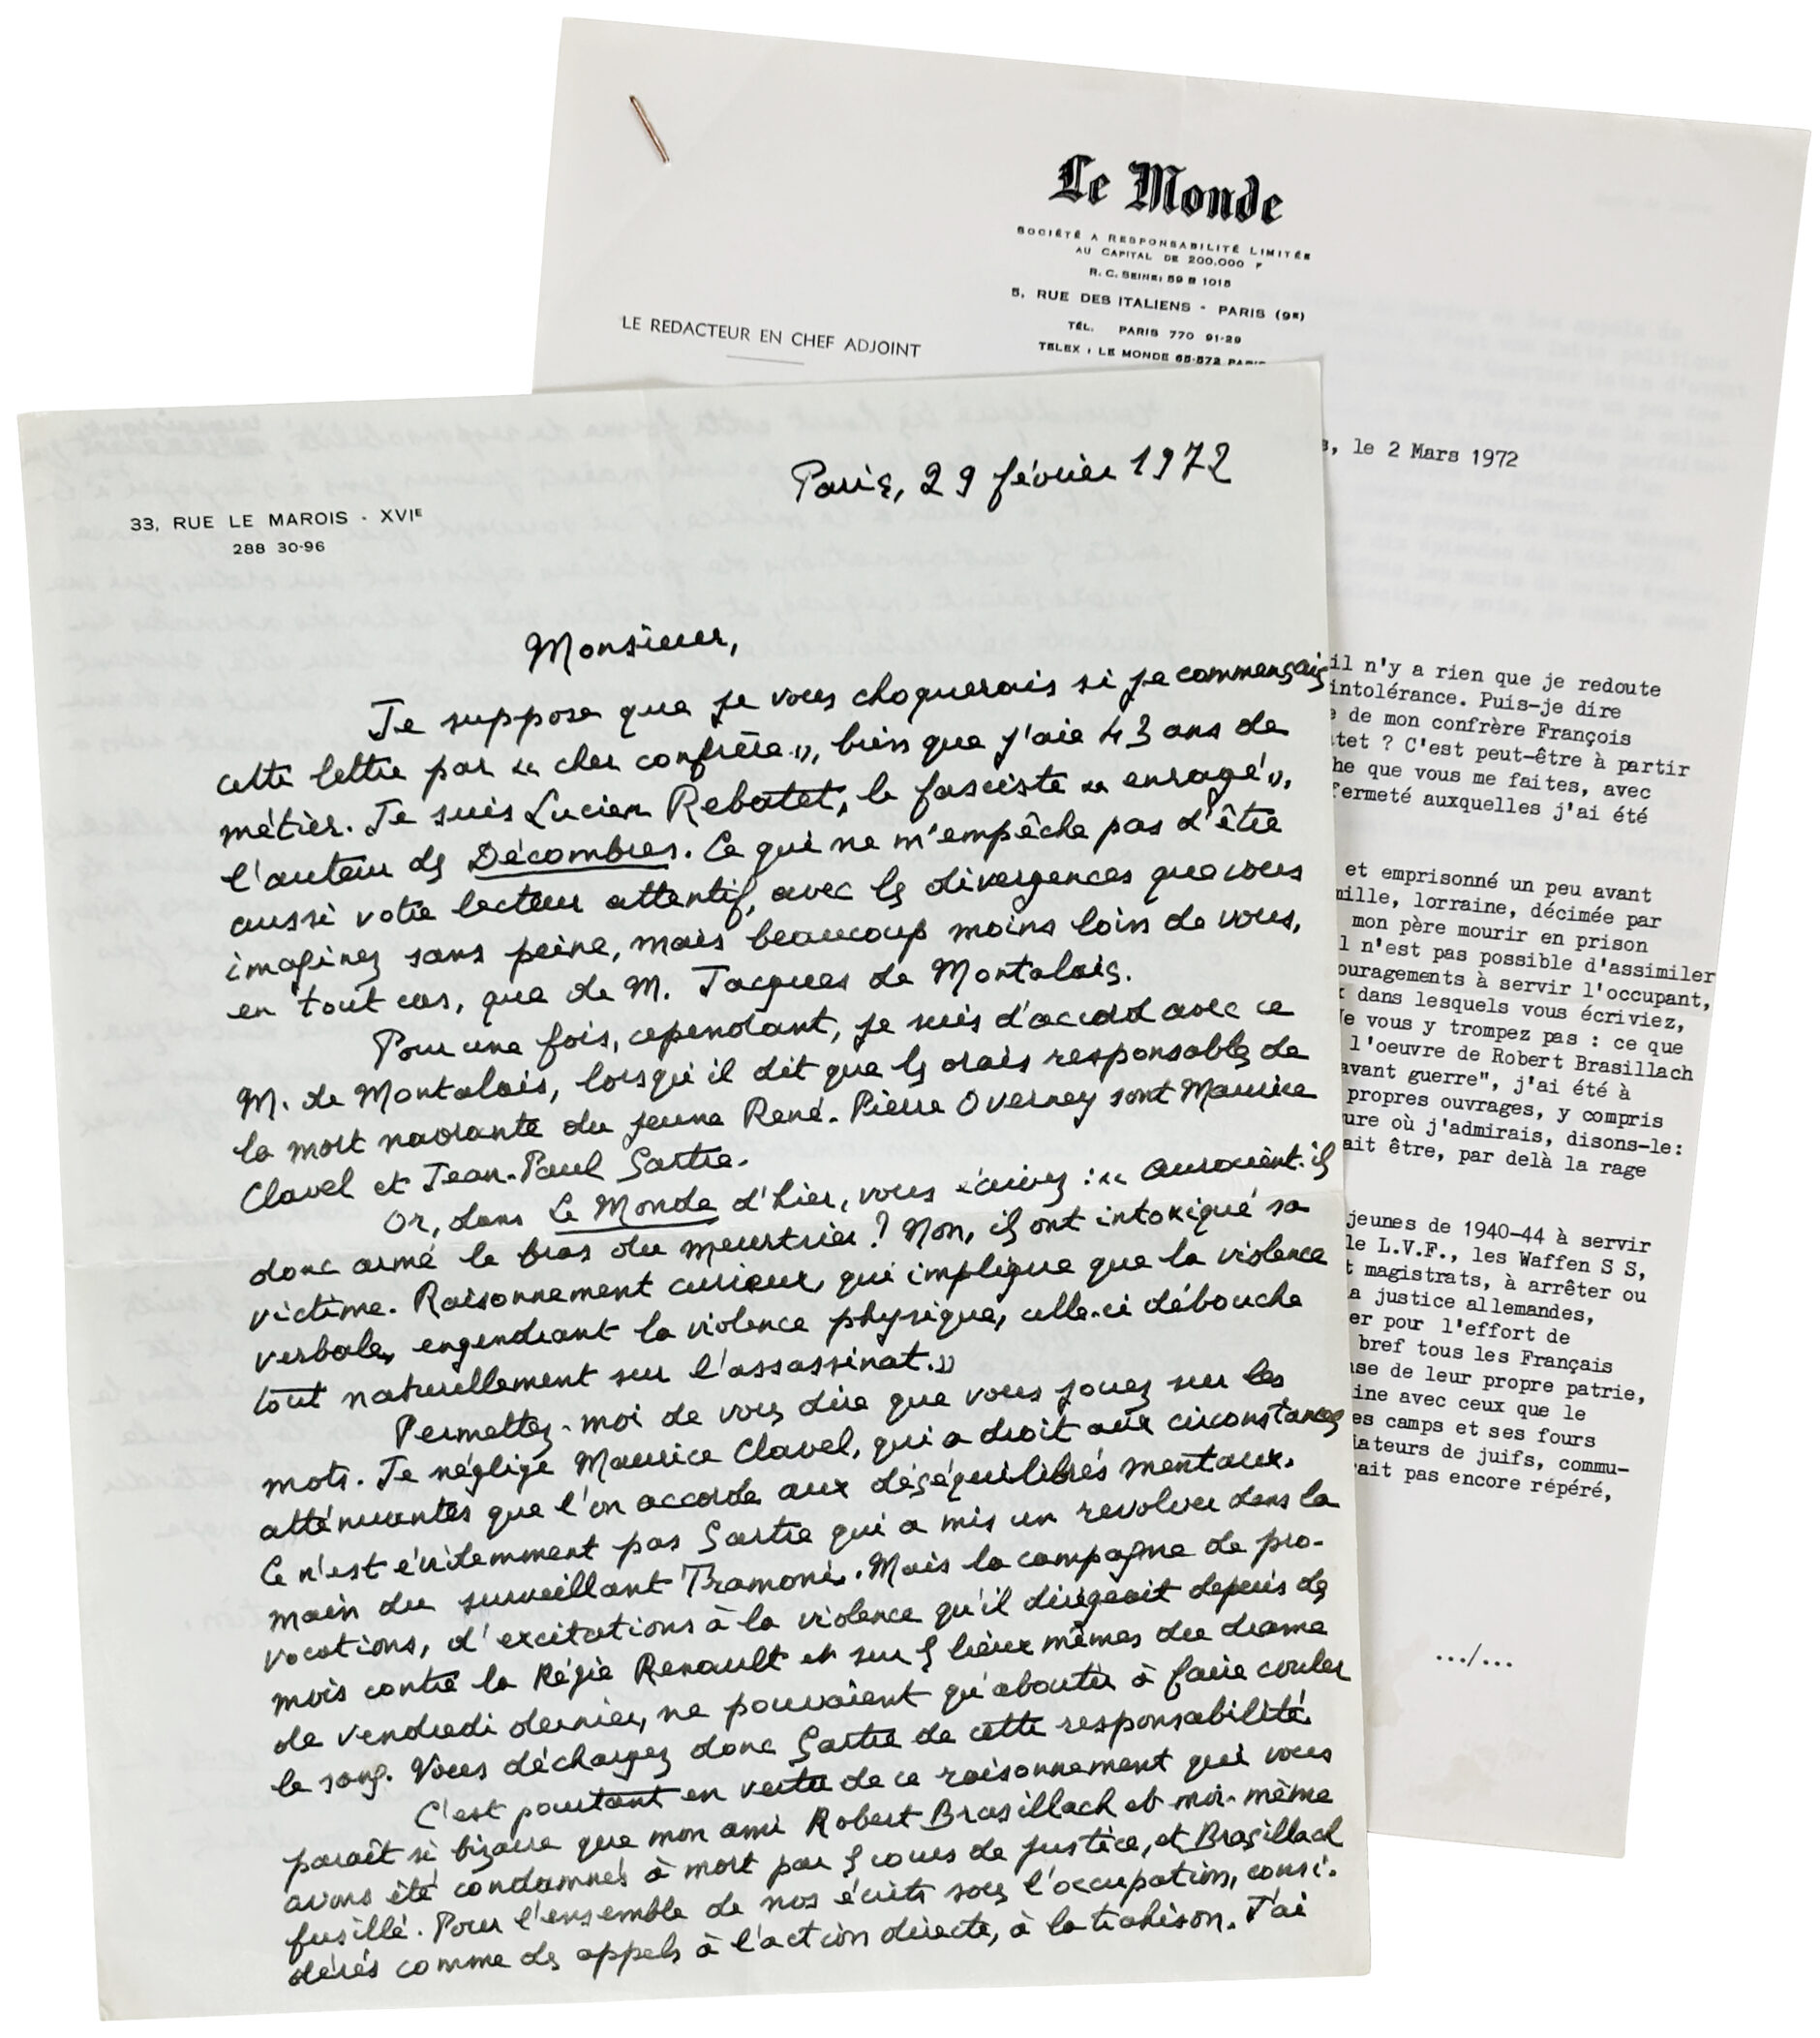 Le Monde
SOCIÉTÉ A RESPONSABILITÉ LIMITÉE
AU CAPITAL DE 200.000 F
R. C. SEINE: 59 B 1015
5, RUE DES ITALIENS - PARIS (9e)
TÉL. PARIS 770 91-29
TELEX : LE MONDE 65-572 PARIS
LE REDACTEUR EN CHEF ADJOINT
s, le 2 Mars 1972
il n'y a rien que je redoute
intolérance. Puis-je dire
e de mon confrère François
tet ? C'est peut-être à partir
he que vous me faites, avec
fermeté auxquelles j'ai été
et emprisonné un peu avant
mille, lorraine, décimée par
mon père mourir en prison
l n'est pas possible d'assimiler
ouragements à servir l'occupant,
x dans lesquels vous écriviez,
Ne vous y trompez pas : ce que
l'oeuvre de Robert Brasillach
avant guerre", j'ai été à
propres ouvrages, y compris
ure où j'admirais, disons-le:
ait être, par delà la rage
jeunes de 1940-44 à servir
le L.V.F., les Waffen S S,
t magistrats, à arrêter ou
a justice allemandes,
er pour l'effort de
bref tous les Français
nse de leur propre patrie,
ine avec ceux que le
es camps et ses fours
iateurs de juifs, commu-
rait pas encore répéré,
.../...
33, RUE LE MAROIS - XVIE
288 30-96
Paris, 29 février 1972
Monsieur,
Je suppose que je vous choquerais si je commençais
cette lettre par « cher confrère », bien que j'aie 43 ans de
métier. Je suis Lucien Rebatet, le fasciste « enragé »,
l'auteur des Décombres. Ce qui ne m'empêche pas d'être
aussi votre lecteur attentif, avec les divergences que vous
imaginez sans peine, mais beaucoup moins loin de vous,
en tout cas, que de M. Jacques de Montalais.
Pour une fois, cependant, je suis d'accord avec ce
M. de Montalais, lorsqu'il dit que les vrais responsables de
la mort navrante du jeune René-Pierre Overney sont Maurice
Clavel et Jean-Paul Sartre.
Or, dans Le Monde d'hier, vous écrivez : « Auraient-ils
donc armé le bras du meurtrier ? Non, ils ont intoxiqué sa
victime. Raisonnement curieux, qui implique que la violence
verbale, engendrant la violence physique, celle-ci débouche
tout naturellement sur l'assassinat. »
Permettez-moi de vous dire que vous jouez sur les
mots. Je néglige Maurice Clavel, qui a droit aux circonstances
atténuantes que l'on accorde aux déséquilibrés mentaux.
Ce n'est évidemment pas Sartre qui a mis un revolver dans la
main du surveillant Tramoni. Mais la campagne de pro-
vocations, d'excitations à la violence qu'il dirigeait depuis des
mois contre la Régie Renault et sur les lieux mêmes du drame
de vendredi dernier, ne pouvaient qu'aboutir à faire couler
le sang. Vous déchargez donc Sartre de cette responsabilité.
C'est pourtant en vertu de ce raisonnement qui vous
paraît si bizarre que mon ami Robert Brasillach et moi-même
avons été condamnés à mort par les cours de justice, et Brasillach
fusillé. Pour l'ensemble de nos écrits sous l'occupation, consi-
dérés comme des appels à l'action directe, à la trahison. J'ai